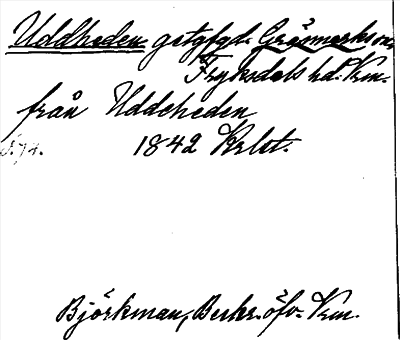 Uddheden gstgfgd. Gräsmarks sn,
Fryksdals hd. Vrm.
från Uddeheden
s. 74. 1842 Krlst.
Björkman, Beskr. öfv. Vrm.